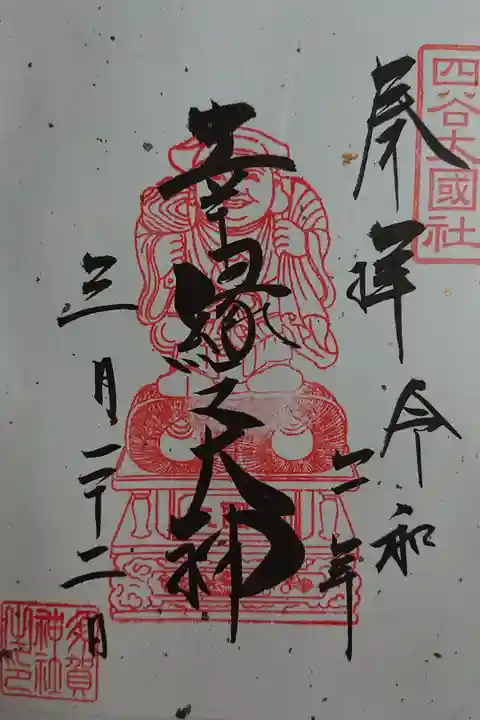 四谷大國社
奉拝
令和
六年
幸縁之大神
三月二十二日
須賀
神社
之印